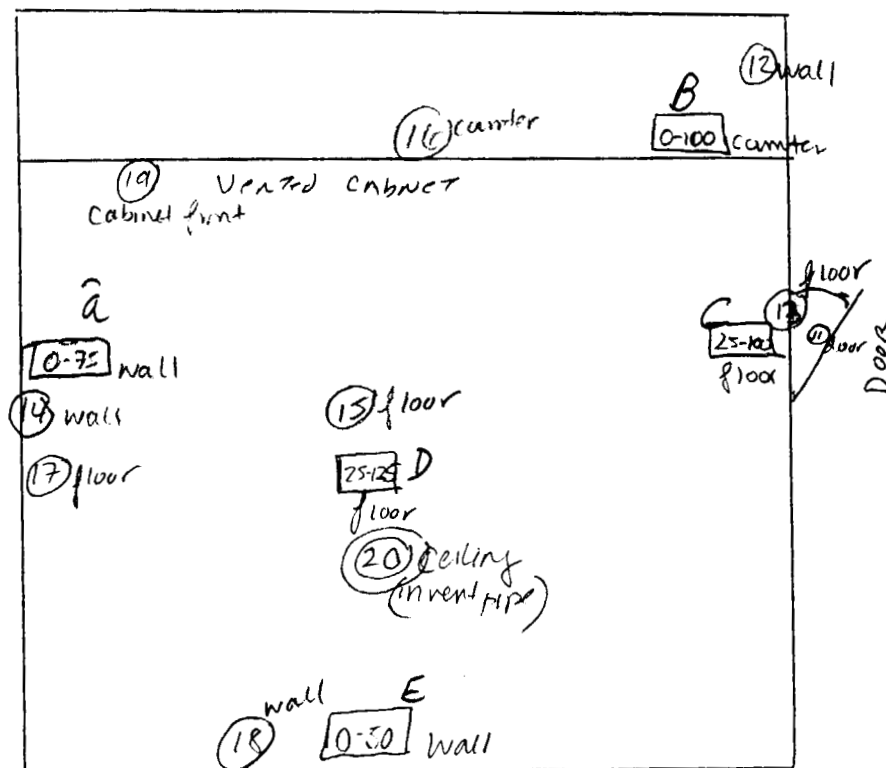 12 wall
B
0-100 counter
16 counter
19 Vented Cabnet
Cabinet front
a
0-75 wall
14 wall
17 floor
15 floor
25-125 D
floor
20 Ceiling
(invent pipe)
C
floor
25-100
floor
11 floor
Door
wall
E
18
0-50 wall